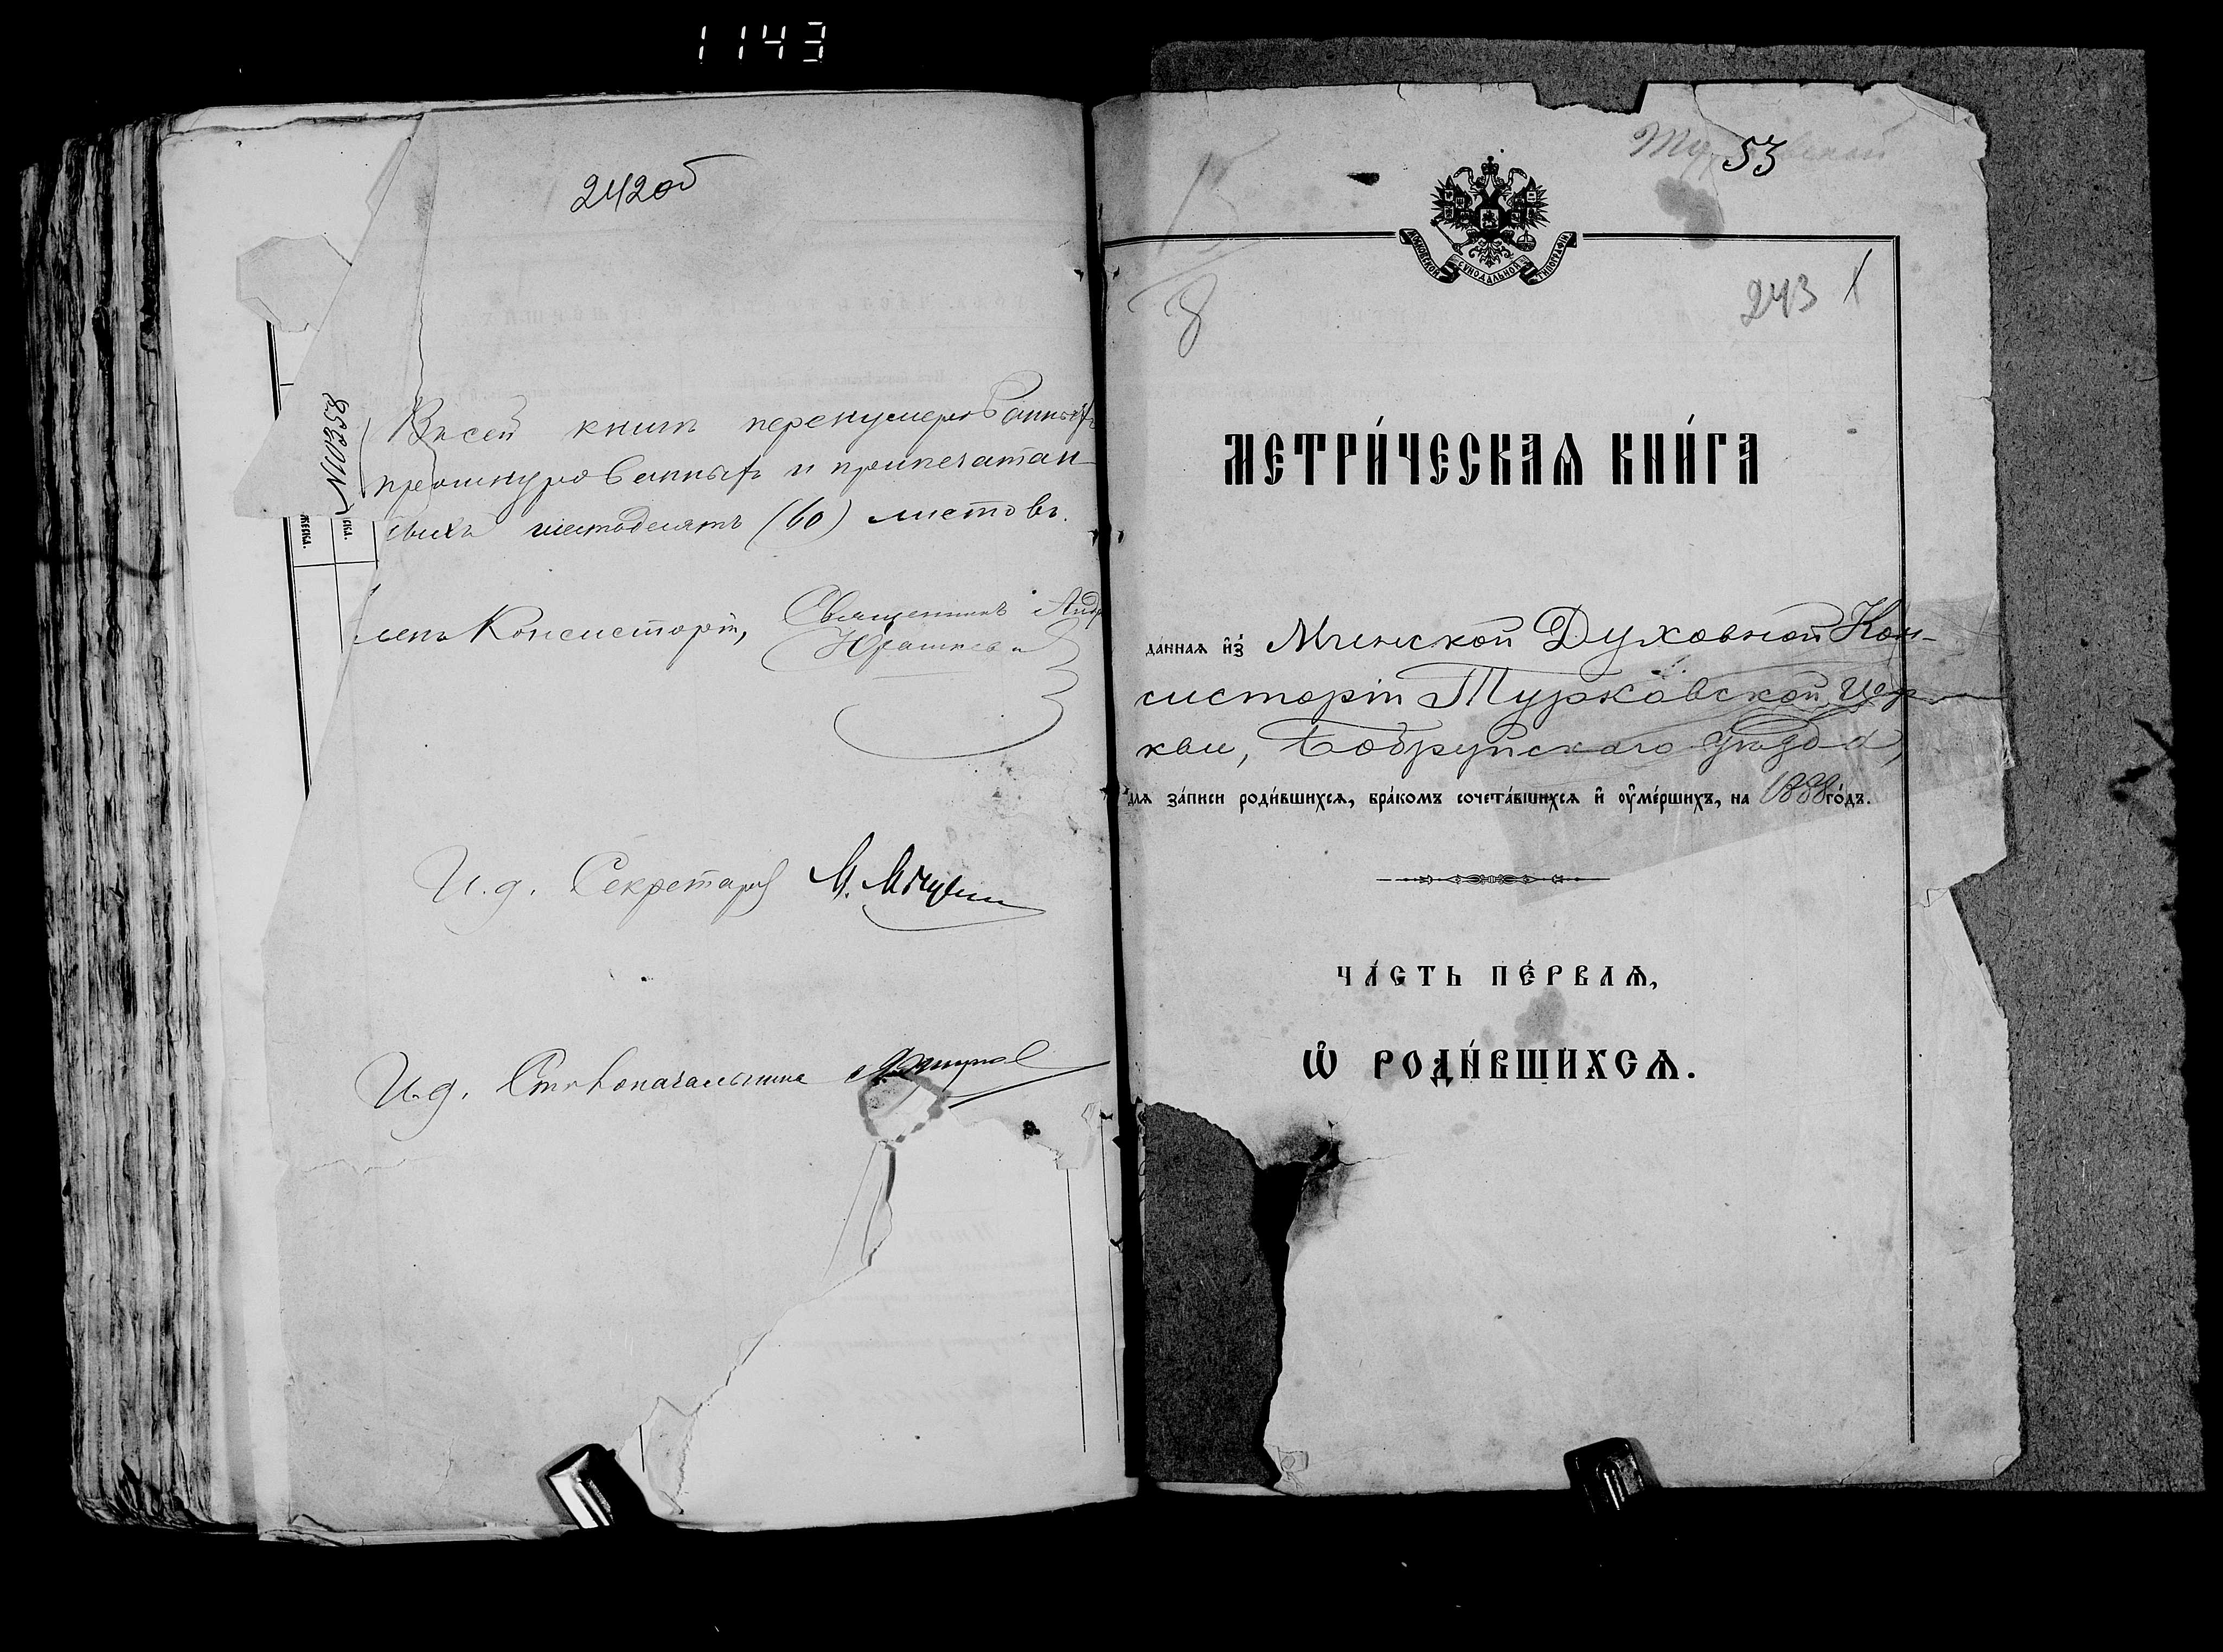 1143
242об
Въ сей книгѣ перенумерованныхъ
прошнурованныхъ и припечатан-
ныхъ шестьдесятъ (60) листовъ.
членъ Консисторіи, Священникъ Андр
Юрашкеви
И. д. Секретаря М.
И. д. Столоначальника
53
МОСКОВСКОЙ СУНОДАЛЬНОЙ ТИПОГРАФІИ
8
243 1
МЕТРИ́ЧЕСКАѦ КНИ́ГА
да́ннаѧ и҆з̾ Минской Духовной Кон-
систоріи Турковской Цер-
кви, Бобруйскаго уѣзда,
длѧ за́писи роди́вшихсѧ, бра́комъ сочета́вшихсѧ и҆ оу҆ме́ршихъ, на 1888 го́дъ.
ЧА́СТЬ ПЕ́РВАѦ,
Ѡ҆ РОДИ́ВШИХСѦ.